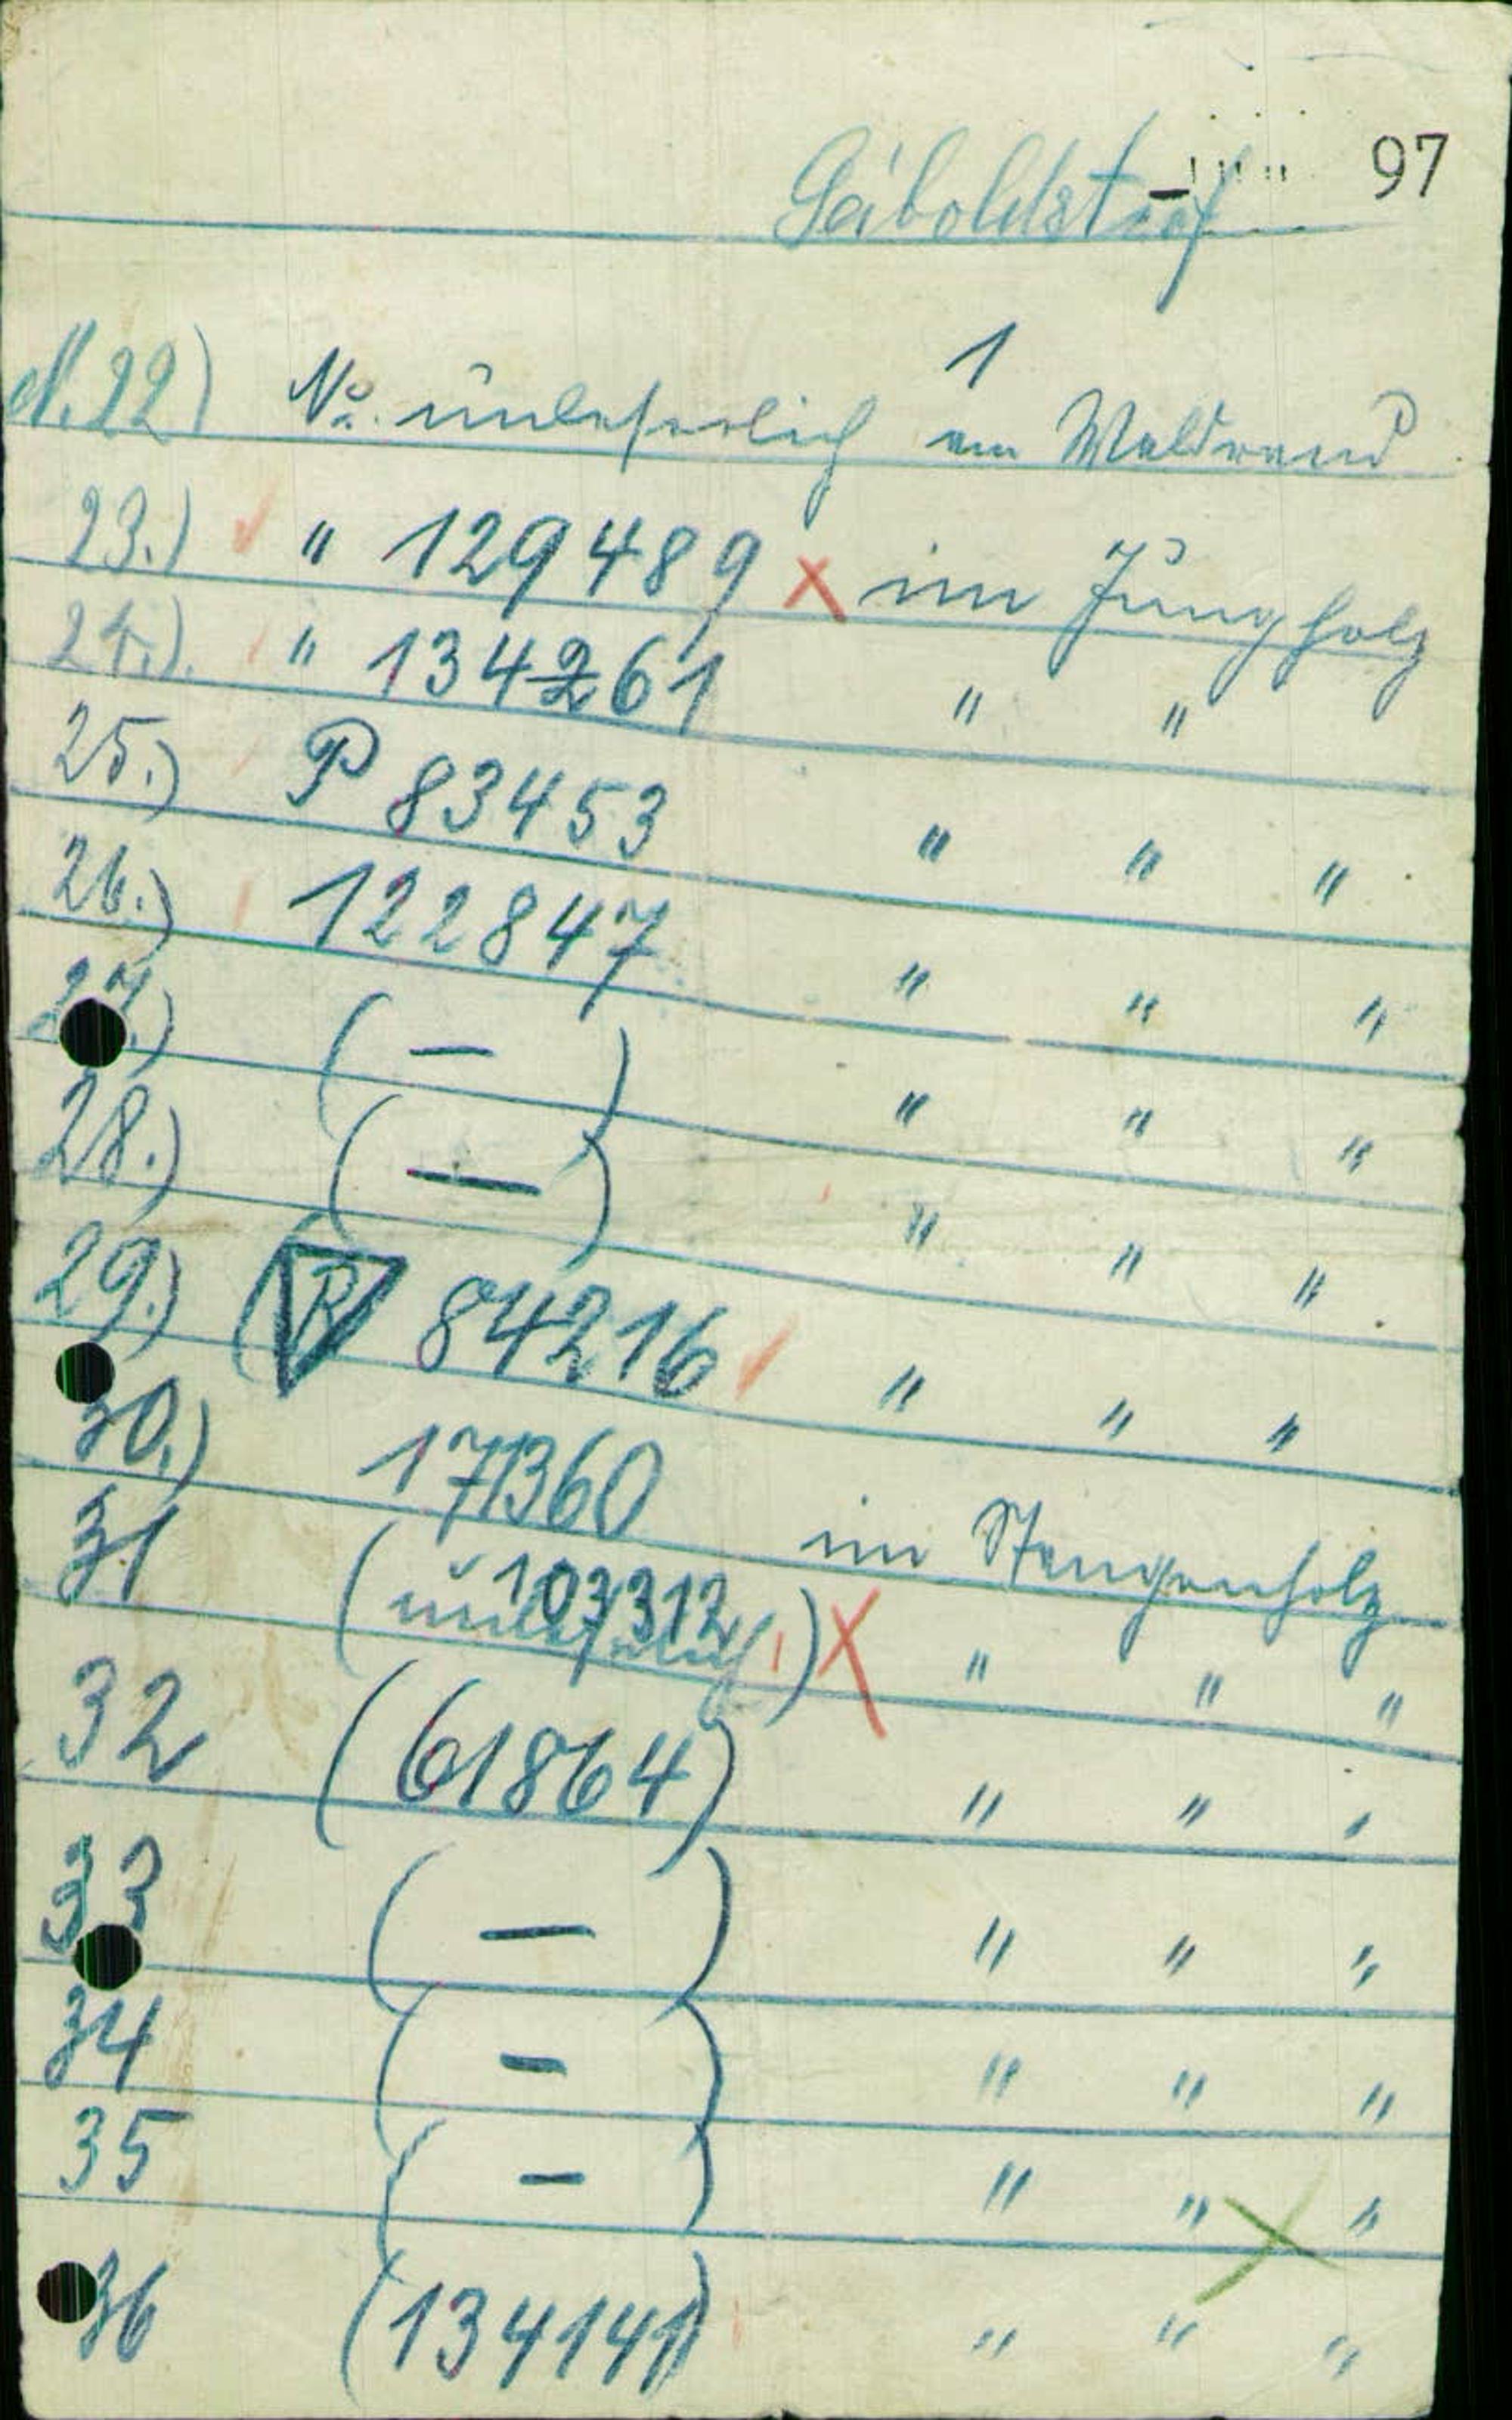 97
Seiboldstorf
1
N.22) No. unleserlich am Waldrand
23.) " 129489 x im Jungholz
24.) " 134261 " "
25.) P 83453 " " "
26.) 122847 " " "
27.) ( — ) " " "
28.) ( — ) " " "
29.) ( R 84216 " " "
30.) 171360 im Stangenholz
31 ( 103312
unleserlich ) X " " "
32 (61864) " " "
33 ( — ) " " "
34 ( — ) " " "
35 ( — ) " " "
36 (134141) " " "